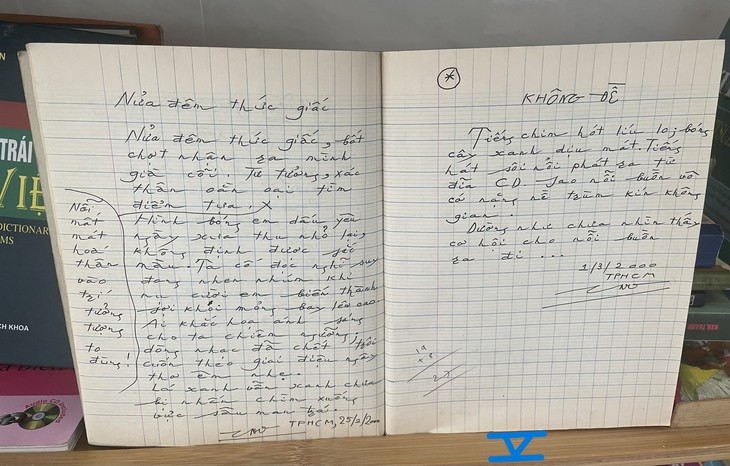 TRÁI
VIỆ
DICTIONAR
MS
CH KHOA
Nửa đêm thức giấc
Nửa đêm thức giấc, bất
chợt nhận ra mình
già cỗi. Tư tưởng, xác
thân oằn oại tìm
điểm tựa. X
Nỗi
mất
mát
hoá
thân
vào
trí
tưởng
tượng
to
đùng!
Hình bóng em dấu yêu
ngày xưa thu nhỏ lại,
không định được sắc
màu. Ta cố đợi nghĩ suy
đang nhen nhúm khi
nụ cười em biến thành
sợi khói mỏng bay lên cao.
Ai khắc hoạ ánh sáng
cho ta chiêm ngưỡng,
dòng nhạc đã chết trôi
cuốn theo giai điệu ngây
thơ êm nhẹ.
Lá xanh vẫn xanh chưa
bị nhấn chìm xuống
vực sâu man trá.
TPHCM, 25/2/2000
*
KHÔNG ĐỀ
Tiếng chim hót líu lo; bóng
cây xanh dịu mát. Tiếng
hát sôi nổi phát ra từ
đĩa CD. Sao nỗi buồn vô
cớ nặng nề trùm kín không
gian.
Dường như chưa nhìn thấy
cơ hội cho nỗi buồn
ra đi ...
1/3/2000
TPHCM
V